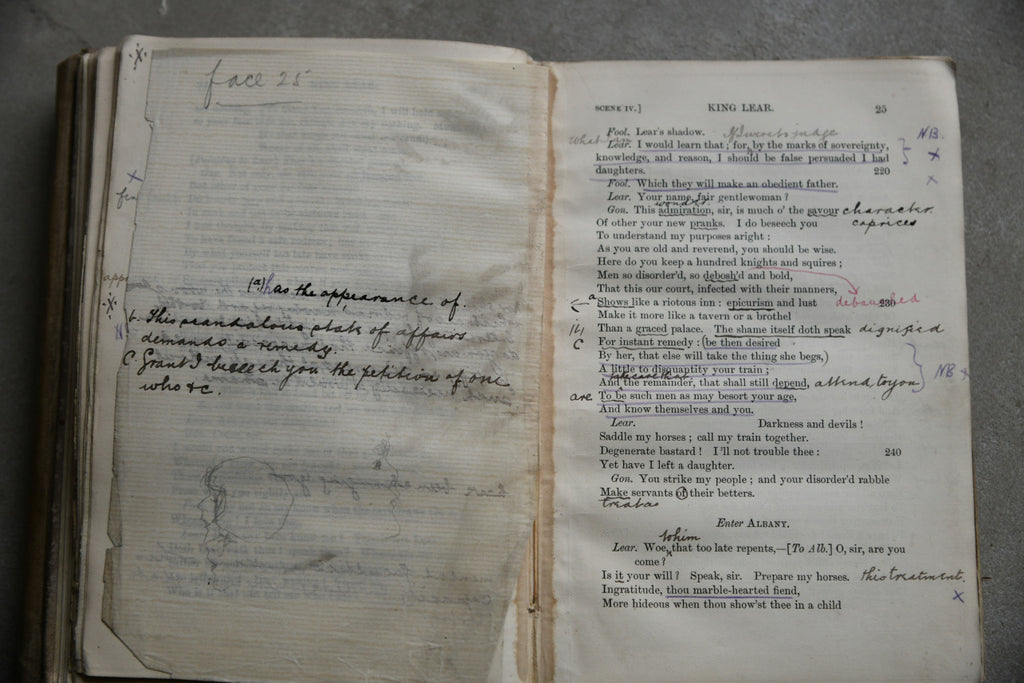 face 25
(a) has the appearance of.
b. This scandalous state of affairs
demands a remedy.
C. Grant I beseech you the petition of one
who &c.
SCENE IV.] KING LEAR. 25
Fool. Lear's shadow.
Lear. I would learn that; for, by the marks of sovereignty, NB.
knowledge, and reason, I should be false persuaded I had x
daughters. 220
Fool. Which they will make an obedient father. x
Lear. Your name, fair gentlewoman?
wonder
Gon. This admiration, sir, is much o' the savour character
Of other your new pranks. I do beseech you caprices
To understand my purposes aright:
As you are old and reverend, you should be wise.
Here do you keep a hundred knights and squires;
Men so disorder'd, so debosh'd and bold,
That this our court, infected with their manners,
a Shows like a riotous inn: epicurism and lust debauched 230
Make it more like a tavern or a brothel
Than a graced palace. The shame itself doth speak dignified
C For instant remedy: (be then desired
By her, that else will take the thing she begs,)
A little to disquantity your train; NB x
And the remainder, that shall still depend, attend to you
are To be such men as may besort your age,
And know themselves and you.
Lear. Darkness and devils!
Saddle my horses; call my train together.
Degenerate bastard! I'll not trouble thee: 240
Yet have I left a daughter.
Gon. You strike my people; and your disorder'd rabble
Make servants of their betters.
treat as
Enter ALBANY.
to him
Lear. Woe, that too late repents,—[To Alb.] O, sir, are you
come?
Is it your will? Speak, sir. Prepare my horses. this treatment.
Ingratitude, thou marble-hearted fiend, x
More hideous when thou show'st thee in a child